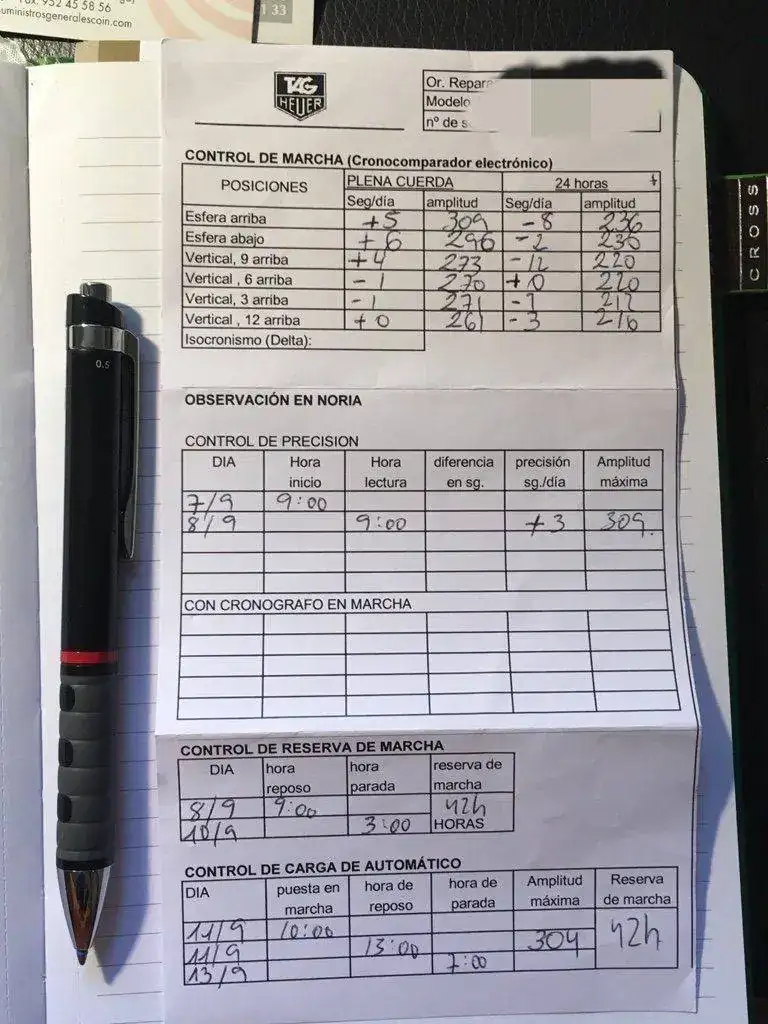 Fax. 952 45 58 56
suministrosgeneralescoin.com
133
CROSS
0.5
TAG
HEUER
Or. Repara
Modelo
nº de s
CONTROL DE MARCHA (Cronocomparador electrónico)
POSICIONES PLENA CUERDA 24 horas
Seg/día amplitud Seg/día amplitud
Esfera arriba +5 309 -8 236
Esfera abajo +6 296 -2 236
Vertical, 9 arriba +4 273 -12 220
Vertical , 6 arriba -1 270 +0 220
Vertical, 3 arriba -1 271 -7 217
Vertical , 12 arriba +0 261 -3 216
Isocronismo (Delta):
OBSERVACIÓN EN NORIA
CONTROL DE PRECISION
DIA Hora inicio Hora lectura diferencia en sg. precisión sg./día Amplitud máxima
7/9 9:00
8/9 9:00 +3 309.
CON CRONOGRAFO EN MARCHA
CONTROL DE RESERVA DE MARCHA
DIA hora reposo hora parada reserva de marcha
8/9 9:00 42h
10/9 3:00 HORAS
CONTROL DE CARGA DE AUTOMÁTICO
DIA puesta en marcha hora de reposo hora de parada Amplitud máxima Reserva de marcha
11/9 10:00
11/9 13:00 304 42h
13/9 7:00